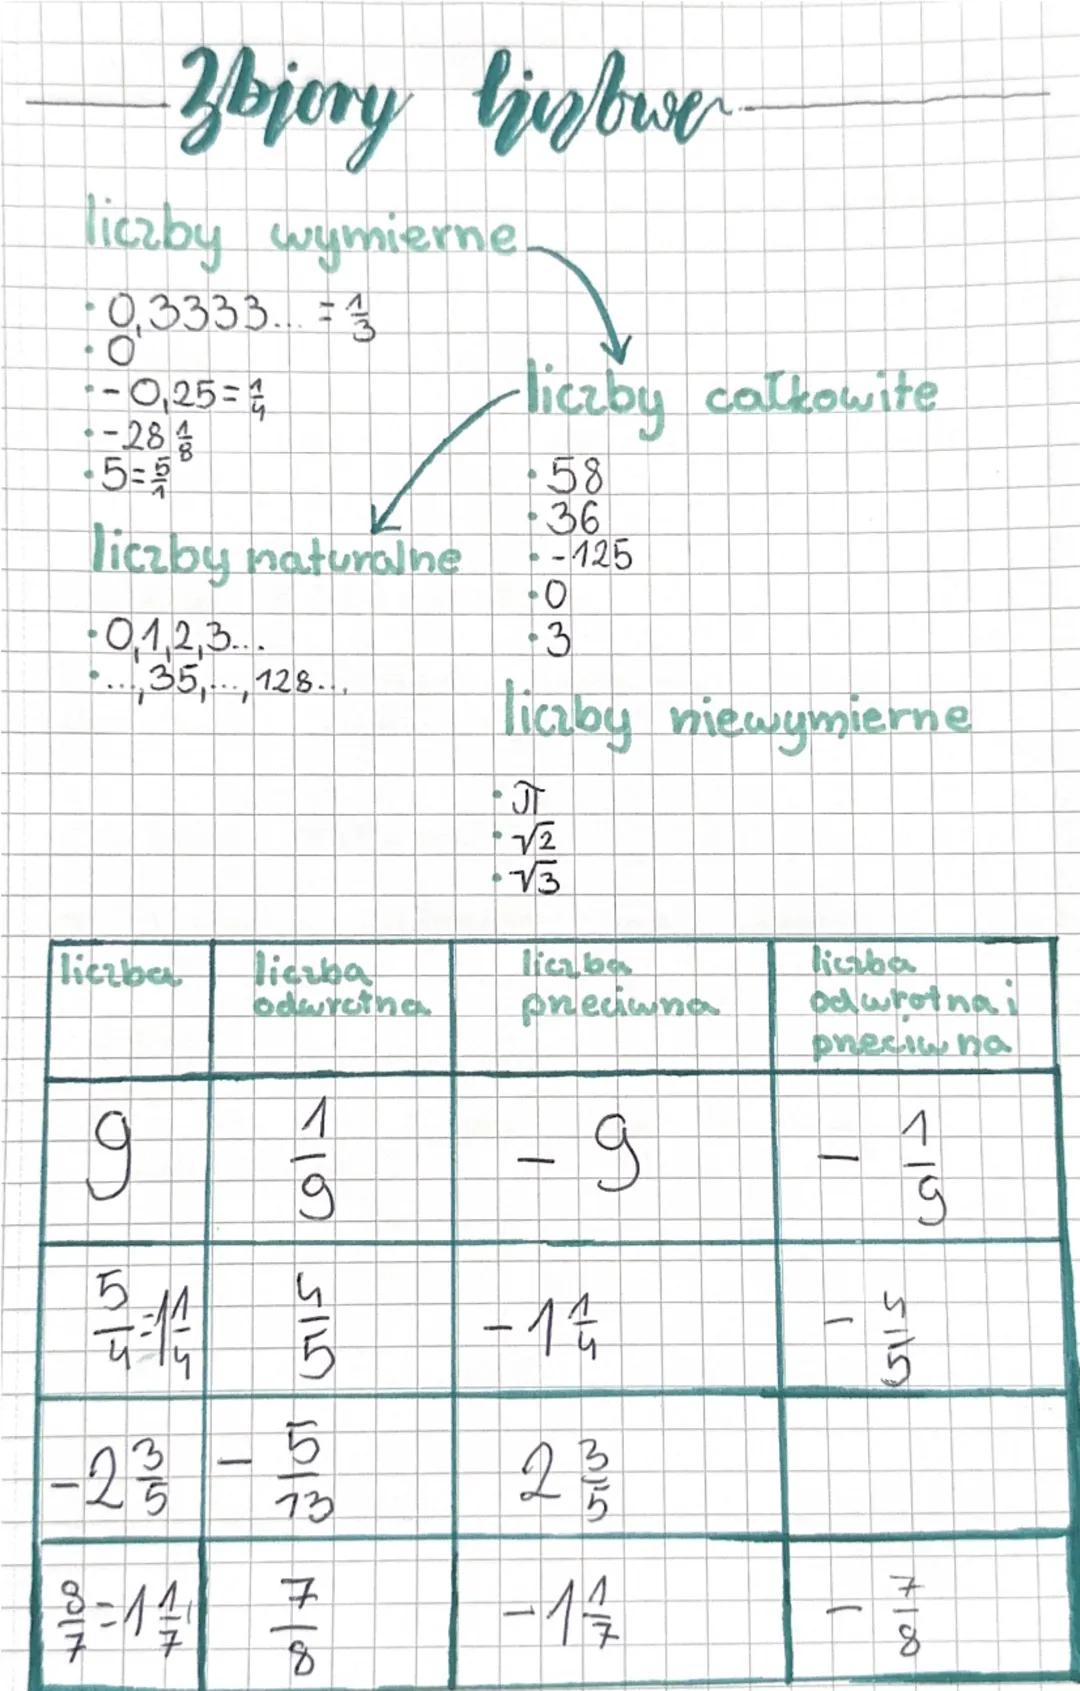 Zbiory liczbowe
liczby wymierne
· 0,3333... = 1/3
· 0
· - 0,25 = 1/4
· -28 1/8
· 5 = 5/1
liczby całkowite
· 58
· 36
· -125
· 0
· 3
liczby naturalne
· 0,1,2,3...
· ...,35,...,128...
liczby niewymierne
· π
· √2
· √3
liczba
liczba
odwrotna
liczba
przeciwna
liczba
odwrotna i
przeciwna
9
1/9
- 9
- 1/9
5/4 = 1 1/4
4/5
- 1 1/4
- 4/5
- 2 3/5
- 5/13
2 3/5
8/7 = 1 1/7
7/8
- 1 1/7
- 7/8